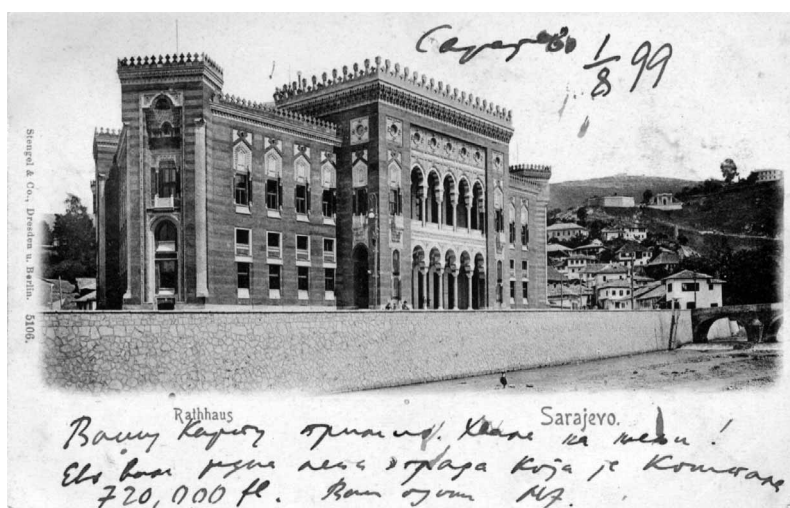 Сарајево 1/8 99
Stengel & Co., Dresden u. Berlin. 5106.
Rathhaus
Sarajevo.
Вашу Карту примио. Хвала на њему!
Ево вам једна лепа зграда која је коштала
720,000 fl. Ваш одани